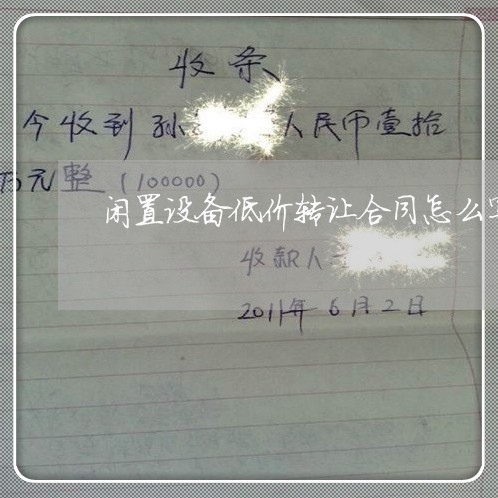 收条
今收到孙 人民币壹拾
万元整（100000）
闲置设备低价转让合同怎么写
收款人
2011年6月2日